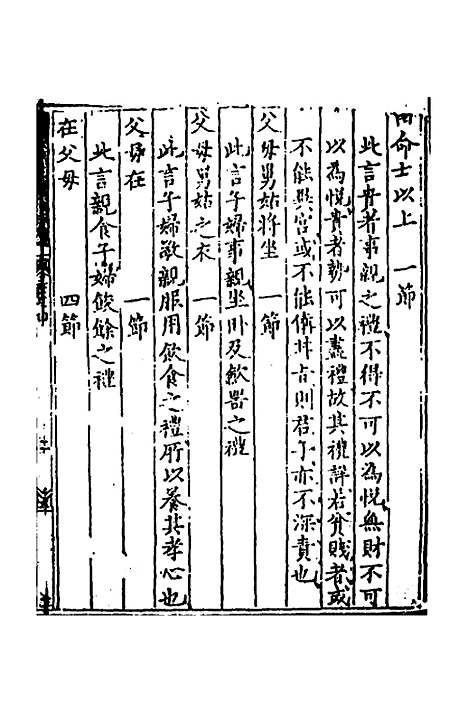 由命士以上　一節
此言貴者事親之禮不得不可以為悅無財不可
以為悅貴者勢可以盡禮故其禮詳若貧賤者或
不能異宮或不能備其旨則君子亦不深責也
父母舅姑將坐　一節
此言子婦事親坐卧及飲器之禮
父母舅姑之衣　一節
此言子婦敬親服用飲食之禮所以養其孝心也
父母在　一節
此言親食子婦餕餘之禮
在父母　四節